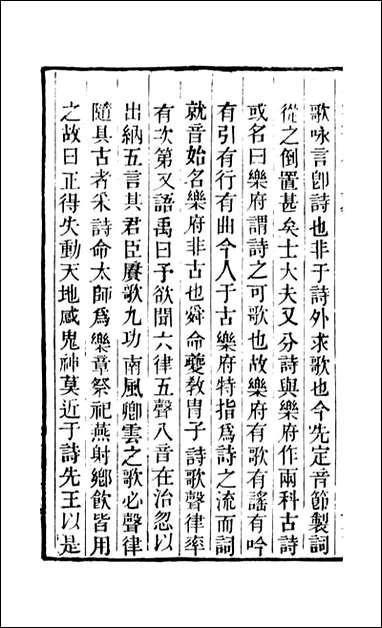 歌咏言卽詩也非于詩外求歌也今先定音節製詞
從之倒置甚矣士大夫又分詩與樂府作兩科古詩
或名曰樂府謂詩之可歌也故樂府有歌有謡有吟
有引有行有曲今人于古樂府特指爲詩之流而詞
就音始名樂府非古也舜命夔敎胄子詩歌聲律率
有次第又語禹曰予欲聞六律五聲八音在治忽以
出納五言其君臣賡歌九功南風卿雲之歌必聲律
隨具古者采詩命太師爲樂章祭祀燕射鄉飮皆用
之故曰正得失動天地感鬼神莫近于詩先王以是